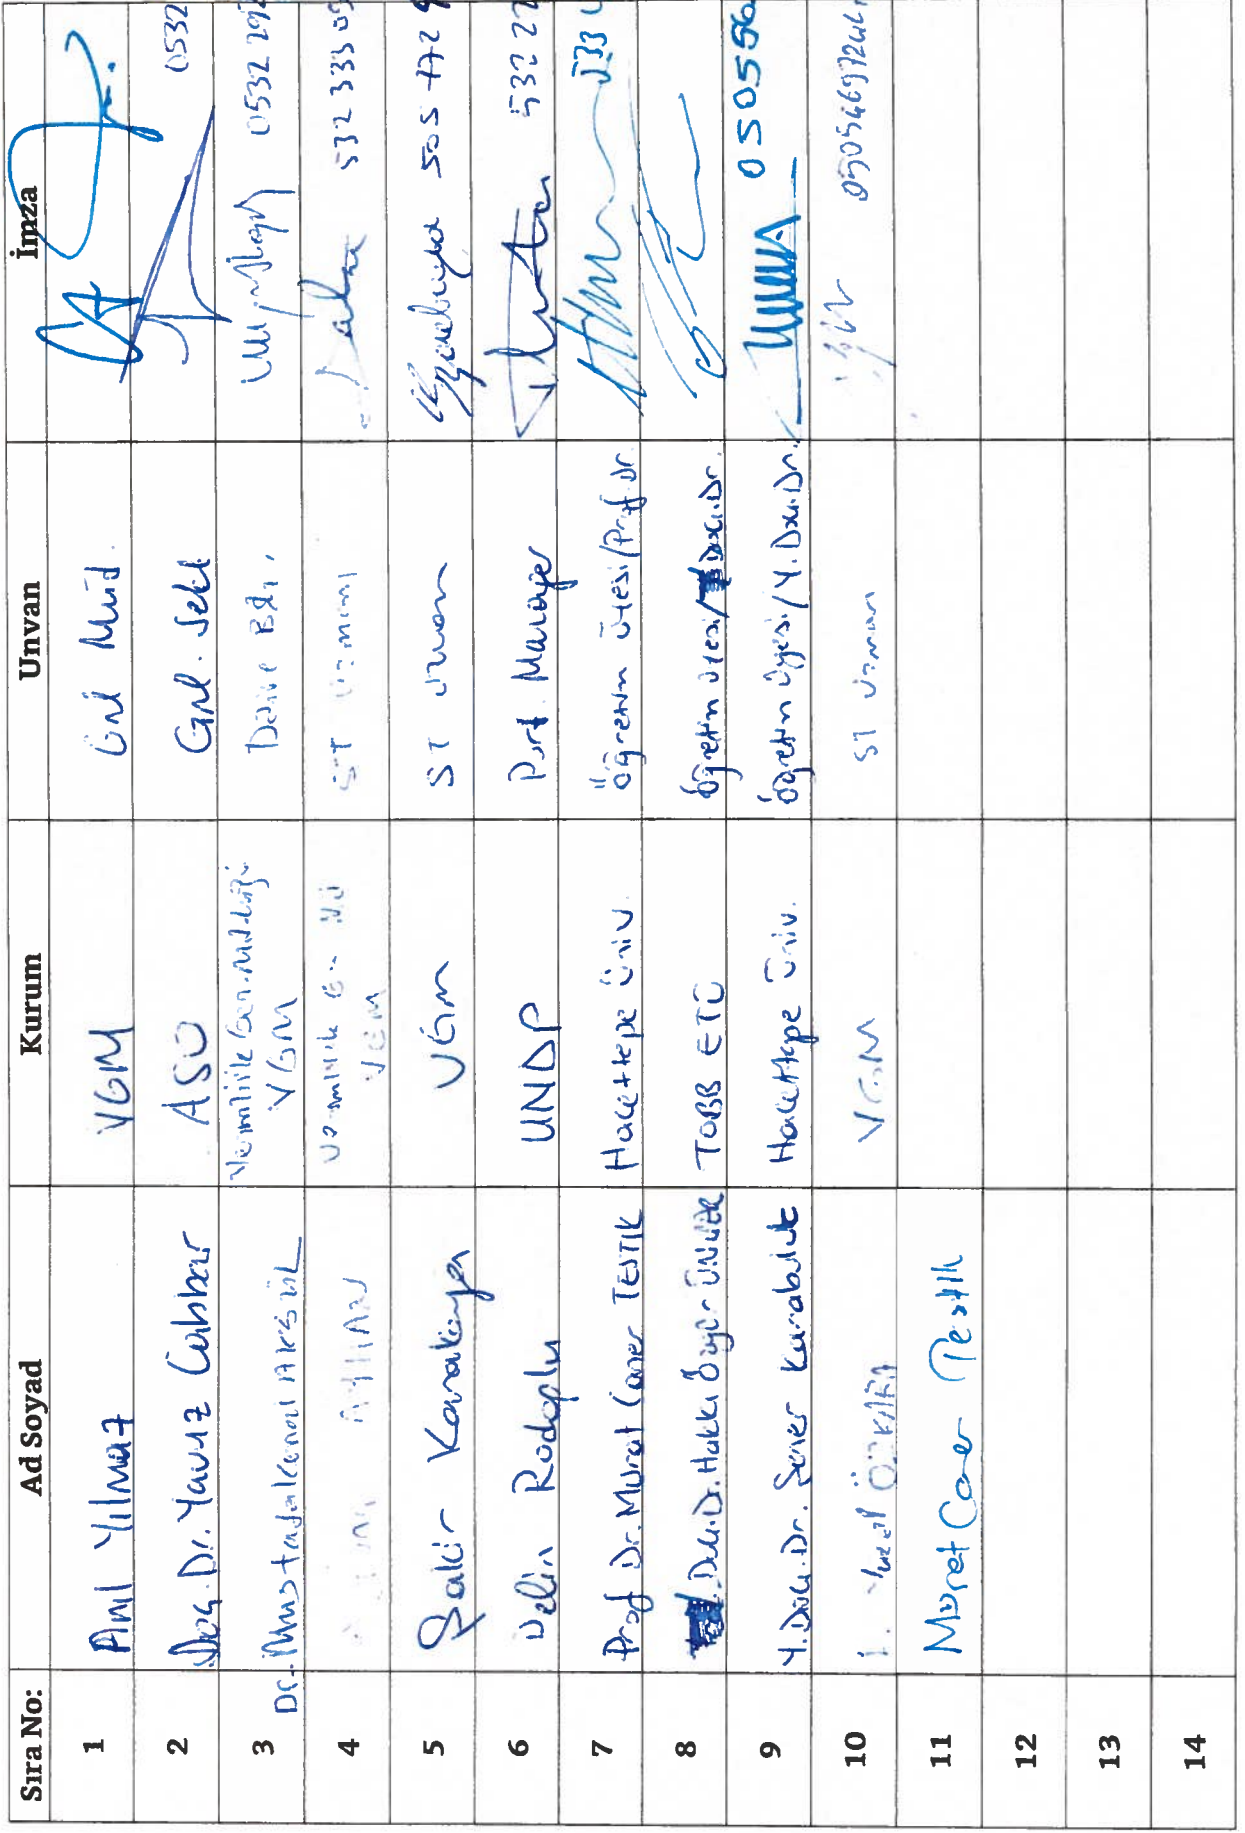 Sıra No: Ad Soyad Kurum Unvan İmza
1 Anıl Yılmaz VGM Gnl Müd.
2 Doç.Dr. Yavuz Cabbar ASO Gnl. Sekt 0532
3 Dr. Mustafa Kemal AKGÜL Verimlilik Gen. Müdürlüğü VGM Daire Bşk. 0532 292
4 Verimlilik VGM ST Uzmanı 532 333 05
5 Şakir Karakaya VGM ST Uzmanı 505 772
6 Pelin Rodoplu UNDP Port. Manager 532 22
7 Prof Dr. Murat Caner TESTİK Hacettepe Üniv. Öğretim Üyesi/Prof.Dr. 533
8 Doç.Dr. Hakkı Özgür ÜNVER TOBB ETÜ Öğretim Üyesi/Doç.Dr.
9 Y.Doç.Dr. Şener Karabulut Hacettepe Üniv. Öğretim Üyesi/Y.Doç.Dr. 050556
10 Yücel ÖZKARA VGM ST Uzmanı
11 Murat Caner Testik
12
13
14